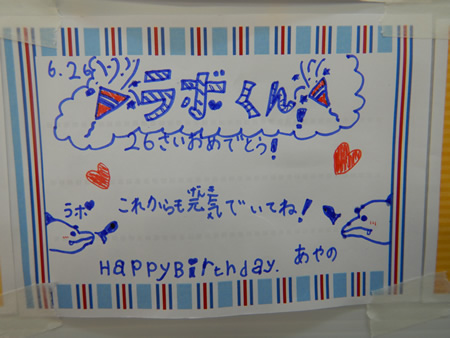 6.26
ラボくん!
26さいおめでとう!
これからも元気でいてね!
げんき
ラボ
HappyBirthday.
あやの